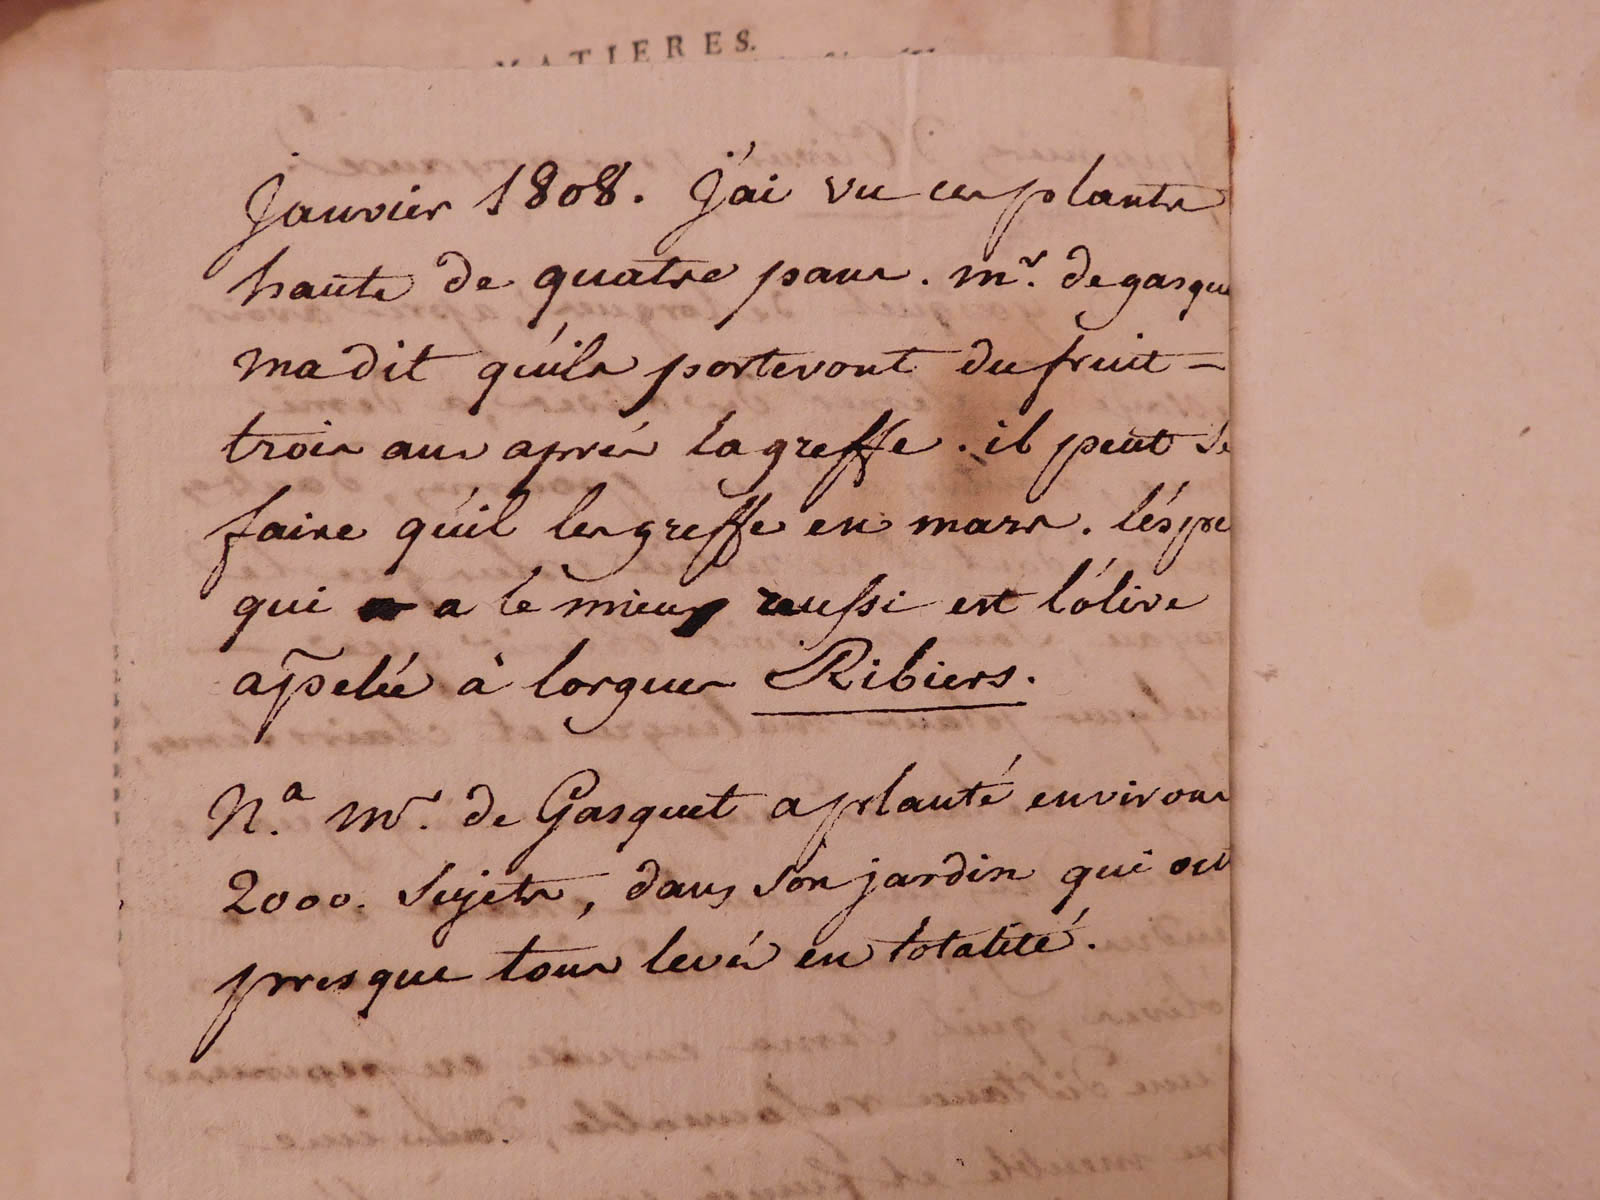 MATIERES.
Janvier 1808. j'ai vu ces plants
hauts de quatre pans. mr. de gasque
ma dit qu'ils porteront du fruit -
trois ans après la greffe. il peut se
faire qu'il les greffe en mars. l'éspe
qui a le mieux reussi est l'olive
appelée à lorgues Ribiers.
Na. Mr. de Gasquet a planté environs
2000. sujets, dans son jardin qui ont
presque tous levés en totalité.